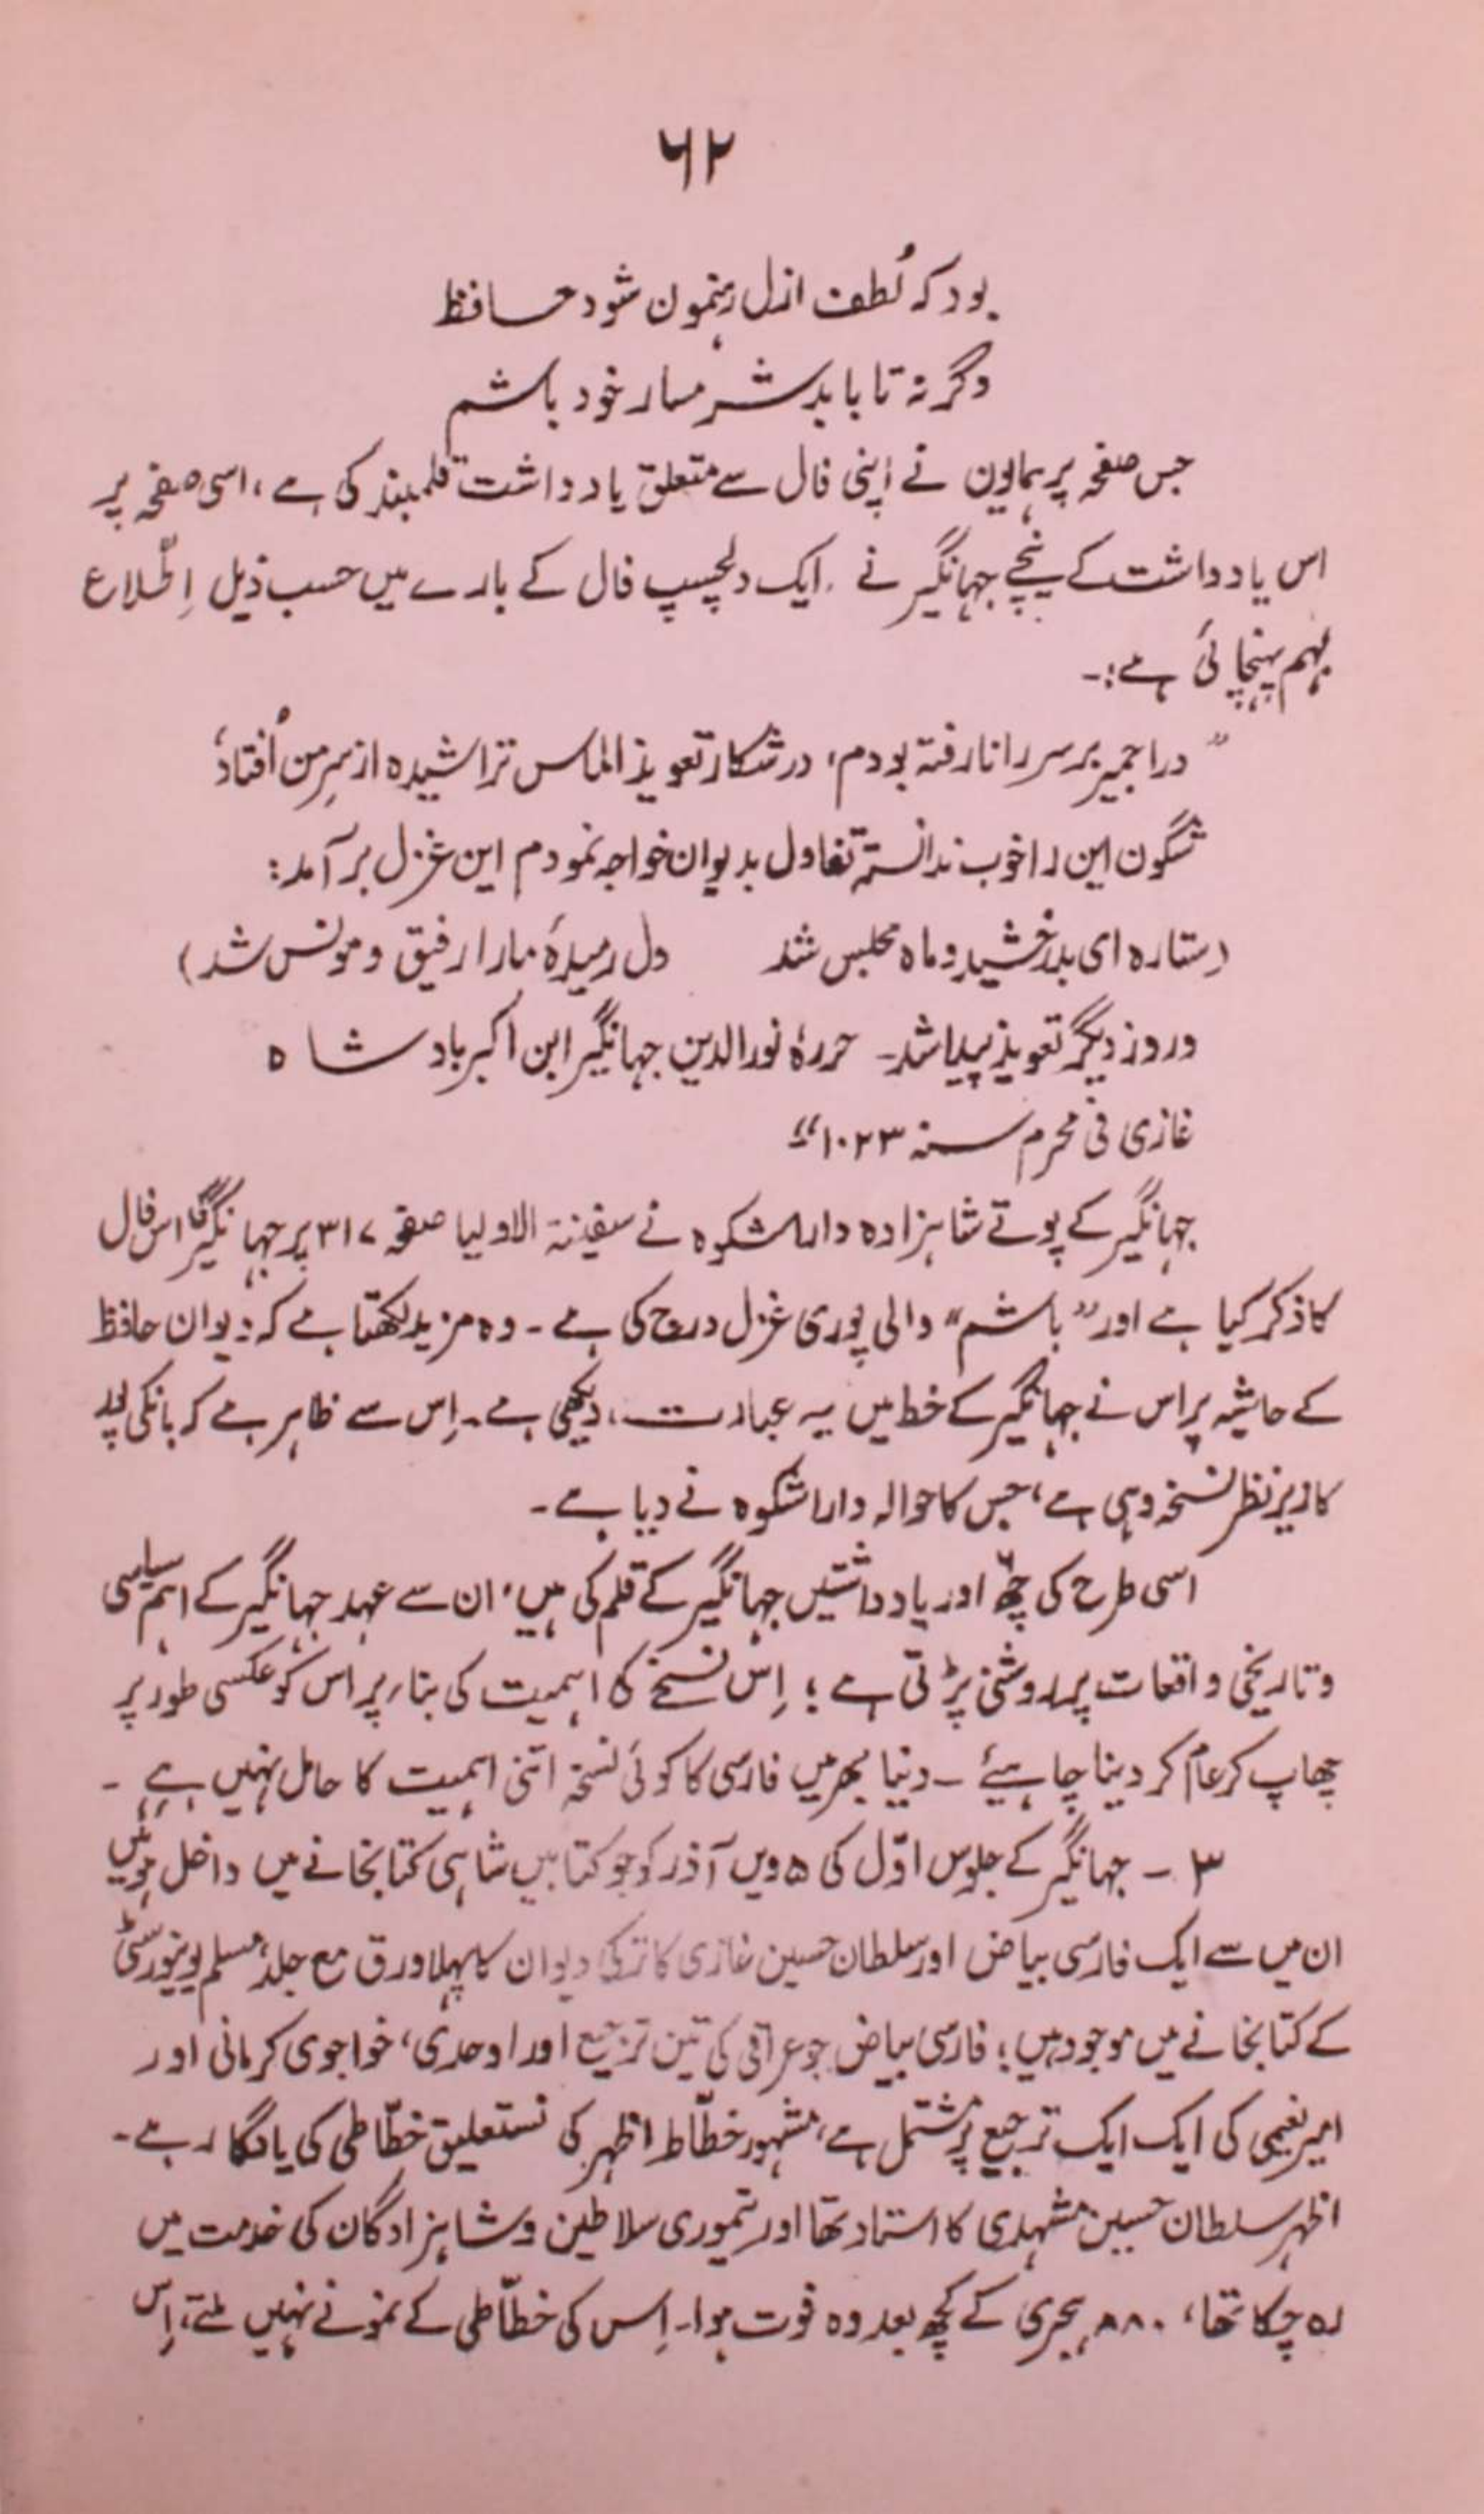 ۶۲
بود کہ لُطف ازل رہنمون شود حافظ
وگرنہ تا بابد شرمسار خود باشم
جس صفحہ پر ہمایون نے اپنی فال سے متعلق یادداشت قلمبند کی ہے، اسی صفحہ پر
اس یادداشت کے نیچے جہانگیر نے ایک دلچسپ فال کے بارے میں حسب ذیل اِطّلاع
بہم پہنچائی ہے:۔
”دراجمیر برسر رانا رفتہ بودم، درشکار تعویذ الماس تراشیدہ از سرِمن اُفتاد،
شگون این را خوب ندانستہ تفاول بدیوان خواجہ نمودم این غزل برآمد:
(ستارہ ای بدرخشید و ماہ مجلس شد دل رمیدۂ مارا رفیق و مونس شد)
و روز دیگر تعویذ پیدا شد۔ حررہٗ نورالدین جہانگیر ابن اکبر بادشاہ
غازی فی محرم سنہ ۱۰۲۳“
جہانگیر کے پوتے شاہزادہ داراشکوہ نے سفینۃ الاولیا صفحہ ۳۱۷ پر جہانگیر کا اس فال
کا ذکر کیا ہے اور ”باشم“ والی پوری غزل درج کی ہے۔ وہ مزید لکھتا ہے کہ دیوان حافظ
کے حاشیہ پر اس نے جہانگیر کے خط میں یہ عبارت دیکھی ہے۔ اِس سے ظاہر ہے کہ بانکی پور
کا زیر نظر نسخہ وہی ہے، جس کا حوالہ داراشکوہ نے دیا ہے۔
اسی طرح کی چھّ اور یادداشتیں جہانگیر کے قلم کی ہیں، ان سے عہد جہانگیر کے اہم سیاسی
و تاریخی واقعات پر روشنی پڑتی ہے؛ اِس نسخے کی اہمیت کی بناء پر اس کو عکسی طور پر
چھاپ کر عام کر دینا چاہیئے۔ دنیا بھر میں فارسی کا کوئی نسخہ اتنی اہمیت کا حامل نہیں ہے۔
۳۔ جہانگیر کے جلوس اوّل کی ۵ ویں آذر کو جو کتابیں شاہی کتابخانے میں داخل ہوئیں
ان میں سے ایک فارسی بیاض اور سلطان حسین غازی کا ترکی دیوان کا پہلا ورق مع جلد، مسلم یونیورسٹی
کے کتابخانے میں موجود ہیں؛ فارسی بیاض جو عراقی کی تین ترجیع اور اوحدی، خواجوی کرمانی اور
امیر نعیمی کی ایک ایک ترجیع پر مشتمل ہے، مشہور خطّاط اظہر کی نستعلیق خطّاطی کی یادگار ہے۔
اظہر سلطان حسین مشہدی کا استاد تھا اور تیموری سلاطین و شاہزادگان کی خدمت میں
رہ چکا تھا، ۸۸۰ ہجری کے کچھ بعد وہ فوت ہوا۔ اِس کی خطّاطی کے نمونے نہیں ملتے، اِس